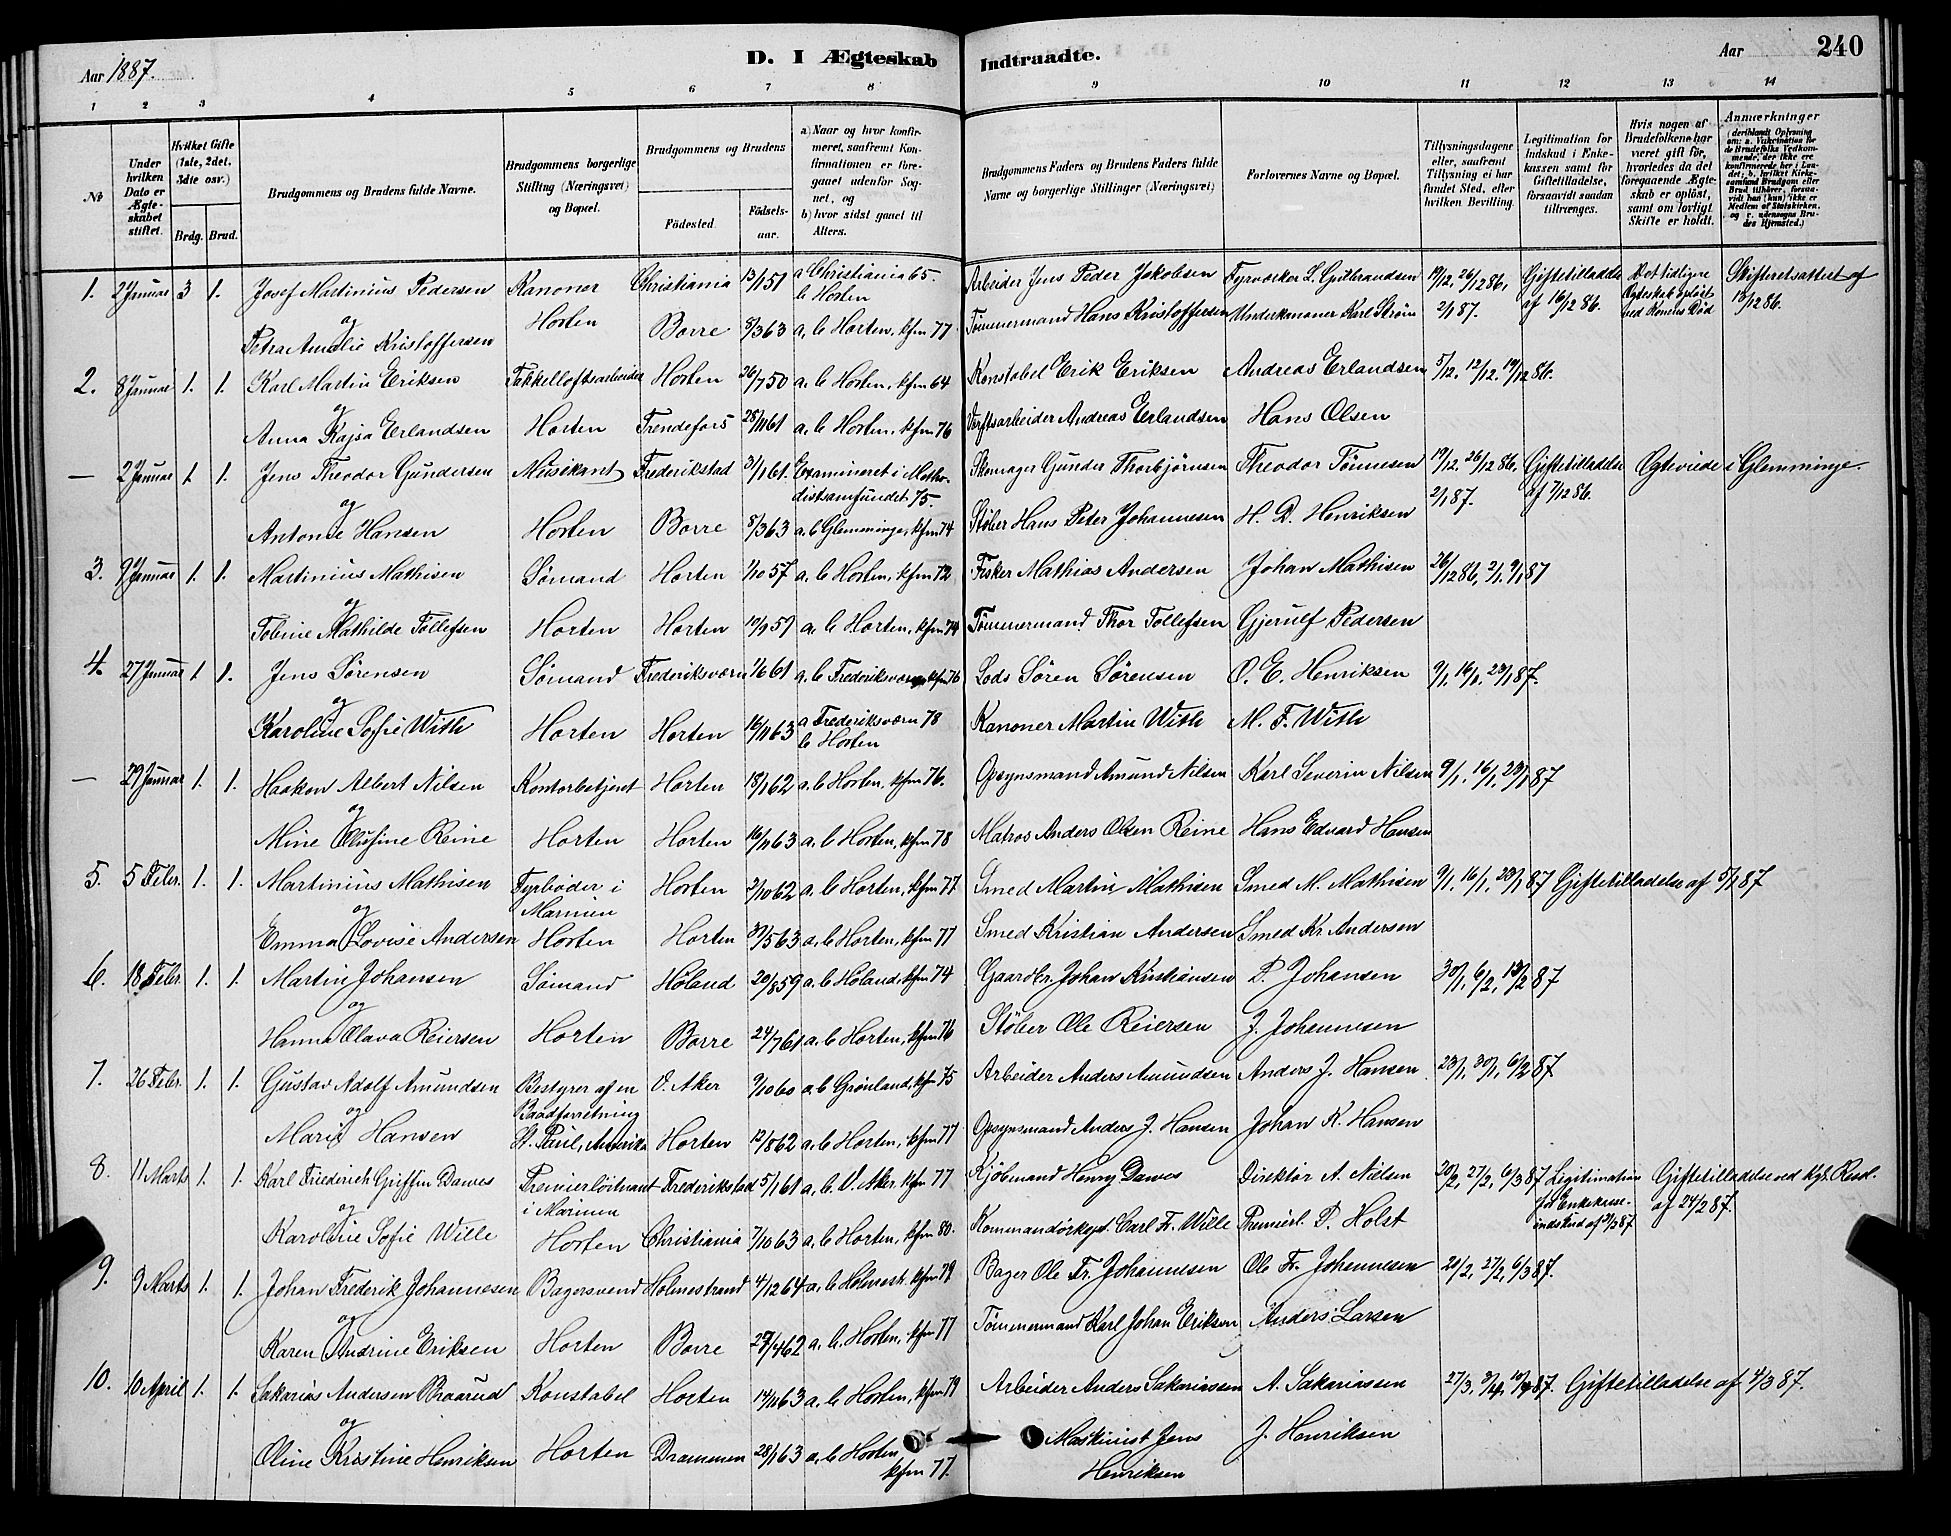 Aar 1887.
D. I Ægteskab Indtraadte.
Aar 240
1 2 3 4 5 6 7 8 9 10 11 12 13 14
No
Under hvilken Dato er Ægteskabet stiftet.
Hvilket Gifte (1ste, 2det, 3die osv.)
Brdg. Brud.
Brudgommens og Brudens fulde Navne.
Brudgommens borgerlige Stilling (Næringsvei) og Bopæl.
Brudgommens og Brudens
Födested.
Födsels-aar.
a) Naar og hvor konfirmeret, saafremt Konfirmationen er foregaaet udenfor Sognet, og
b) hvor sidst gaaet til Alters.
Brudgommens Faders og Brudens Faders fulde Navne og borgerlige Stillinger (Næringsvei)
Forlovernes Navne og Bopæl.
Tillysningsdagene eller, saafremt Tillysning ei har fundet Sted, efter hvilken Bevilling.
Legitimation for Indskud i Enkekassen samt for Giftetilladelse, forsaavidt saadan tiltrænges.
Hvis nogen af Brudefolkene har været gift för, hvorledes da det foregaaende Ægteskab er oplöst, samt om lovligt Skifte er holdt.
Anmærkninger (deriblandt Oplysning om: a. Vaksination for de Brudefolks Vedkommende, der ikke ere konfirmerede her i Landet; b. hvilket Kirkesamfund Brudgom eller Brud tilhörer, forsaavidt han (hun) ikke er Medlem af Statskirken, og c. udensogns Brudes Hjemsted.)
1. 2 Januar 3 1. Josef Martinius Pedersen Kanoner Christiania 13/1 51 a Christiania 65. b Horten Arbeider Jens Peder Jakobsen Fyrværker L. Gulbrandsen 19/12, 26/12 86, 2/1 87. Giftetilladelse af 16/12 86. Det tidligere Ægteskab opløst ved Konens Død Skifteretsattest af 18/12 86.
og
Petra Amalie Kristoffersen Horten Borre 8/3 63 a, b Horten, kfm 77. Tømmermand Hans Kristoffersen Underkanoner Karl Strøm
2. 8 Januar 1. 1. Karl Martin Eriksen Takkelloftsarbeider Horten 26/7 50 a, b Horten, kfm 64 Konstabel Erik Eriksen Andreas Erlandsen 5/12, 12/12, 19/12 86.
og
Anna Kajsa Erlandsen Horten Trendefors 28/11 61 a, b Horten, kfm 76 Verftsarbeider Andreas Erlandsen Hans Olsen
— 2 Januar 1 1. Jens Theodor Gundersen Musikant Frederikstad 31/1 61. Examineret i Methodistsamfundet 75. Skomager Gunder Thorbjørnsen Theodor Tønnesen 19/12, 26/12 86, 2/1 87. Giftetilladelse af 7/12 86. Ægteviede i Glemminge.
og
Antonie Hansen Horten Borre 8/3 63 a, b Glemminge, kfm 74 Støber Hans Peter Johannesen H. D. Henriksen
3. 9 Januar 1. 1. Martinius Mathisen Sømand Horten 1/10 57 a, b Horten, kfm 72 Fisker Mathias Andersen Johan Mathisen 26/12 86, 2/1, 9/1 87
og
Tobine Mathilde Tollefsen Horten Horten 19/9 59 a, b Horten, kfm 74 Tømmermand Thor Tollefsen Gjerulf Pedersen
4. 27 Januar 1 1. Jens Sørensen Sømand Frederiksværn 1/6 61 a, b Frederiksværn kfm 76 Lods Søren Sørensen O. E. Henriksen 9/1, 16/1, 23/1 87.
og
Karoline Sofie With Horten Horten 16/11 63 a Frederiksværn 78 b Horten Kanoner Martin With M. F. With
— 29 Januar 1. 1. Haakon Albert Nilsen Kontorbetjent Horten 18/1 62 a, b Horten, kfm 76. Opsynsmand Amund Nilsen Karl Severin Nilsen 9/1, 16/1, 23/1 87
og
Mine Olufine Reine Horten Horten 16/11 63 a, b Horten, kfm 78 Matros Anders Olsen Reine Hans Edvard Hansen
5. 5 Febr. 1. 1. Martinius Mathisen Fyrbøder i Marinen Horten 2/10 62 a, b Horten, kfm 77 Smed Martin Mathisen Smed M. Mathisen 9/1, 16/1, 23/1 87 Giftetilladelse af 5/1 87
og
Emma Lovise Andersen Horten Horten 30/5 63 a, b Horten, kfm 77 Smed Kristian Andersen Smed Kr. Andersen
6. 18 Febr. 1. 1. Martin Johansen Sømand Høland 20/8 59 a, b Høland, kfm 74 Gaardbr. Johan Kristiansen P. Johansen 30/1, 6/2, 13/2 87
og
Hanna Olava Reiersen Horten Borre 24/7 61 a, b Horten, kfm 76 Støber Ole Reiersen J. Johannesen
7. 26 Febr. 1. 1. Gustav Adolf Amundsen Bestyrer af en Baadforretning Ø. Aker 9/10 60 a, b Grønland, kfm 75 Arbeider Anders Amundsen Anders J. Hansen 23/1, 30/1, 6/2 87
og
Marie Hansen St. Paul, Amerika Horten 12/8 62 a, b Horten, kfm 77 Opsynsmand Anders J. Hansen Johan K. Hansen
8. 11 Marts 1. 1. Karl Friederich Griffin Dawes Premierløitnant i Marinen Frederikstad 5/1 61 a, b. V. Aker kfm 77 Kjøbmand Henry Dawes Direktør A. Nielsen 20/2, 27/2, 6/3 87 Legitimation for Enkekasseindskud af 3/3 87 Giftetilladelse ved kgl. Resol. af 24/2 87.
og
Karoline Sofie Wille Horten Christiania 7/10 63 a, b Horten, kfm 80. Kommandørkapt. Carl Fr. Wille Premierl. P. Holst
9. 9 Marts 1. 1. Johan Frederik Johannesen Bagersvend Holmestrand 4/12 64 a, b Holmestr. kfm 79 Bager Ole Fr. Johannesen Ole Fr. Johannesen 20/2, 27/2, 6/3 87.
og
Karen Andrine Eriksen Horten Borre 29/4 62 a, b. Horten, kfm 77 Tømmermand Karl Johan Eriksen Anders Larsen
10. 10 April 1. 1. Sakarias Andersen Braarud Konstabel Horten 14/11 63 a, b Horten, kfm 79 Arbeider Anders Sakariassen A. Sakariassen 27/3, 3/4, 10/4 87. Giftetilladelse af 4/3 87.
og
Oline Kristine Henriksen Horten Drammen 28/1 63 a, b Horten kfm 77. Maskinist Jens Henriksen J. Henriksen